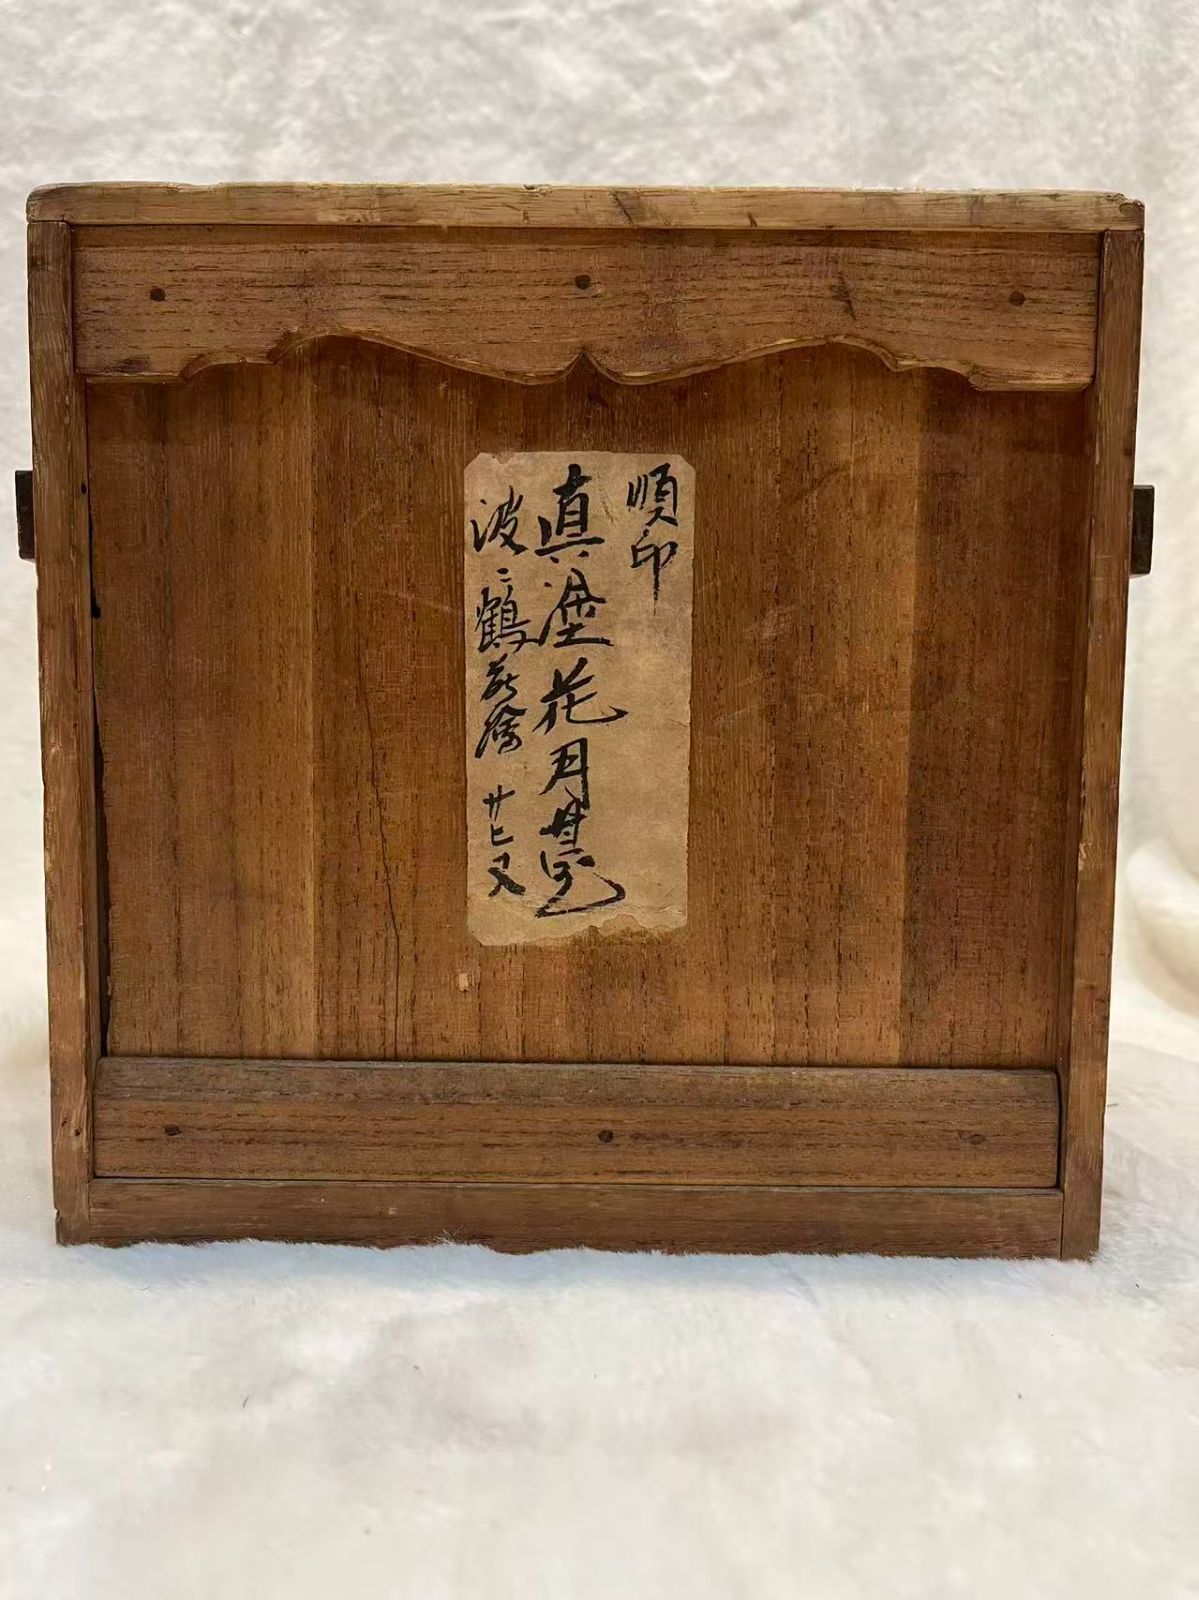 順印
真塗花月
波ニ鶴蒔繪 廿